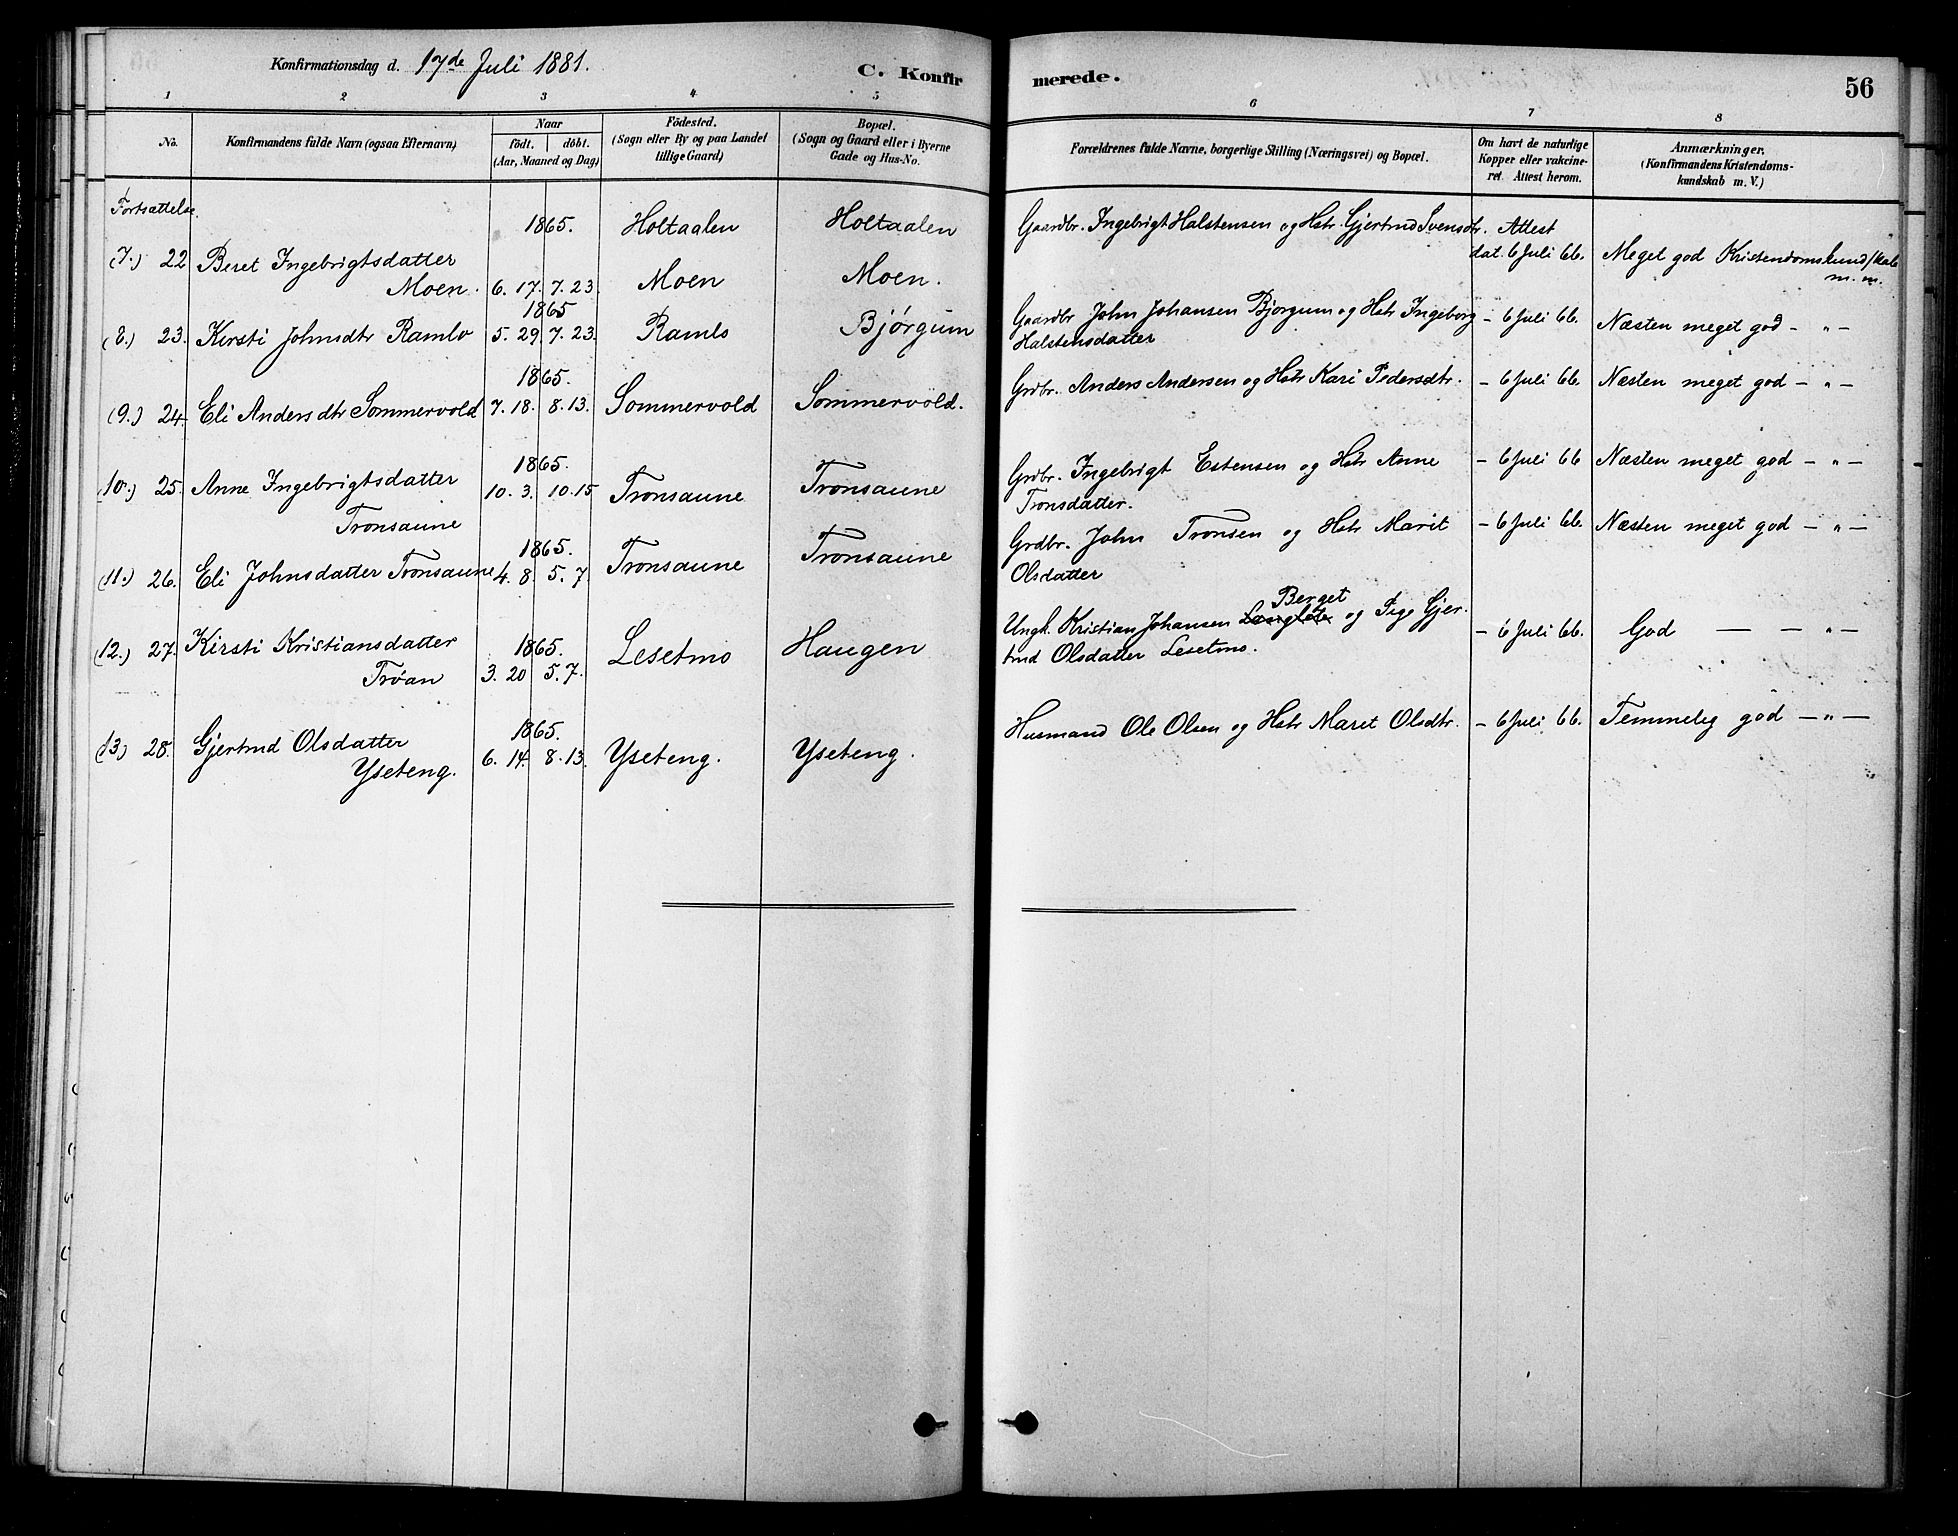 Konfirmationsdag d. 17de Juli 1881.
C. Konfirmerede.
56
1 2 3 4 5 6 7 8
No.
Konfirmandens fulde Navn (ogsaa Efternavn)
Naar
født. | døbt.
(Aar, Maaned og Dag)
Födested.
(Sogn eller By og paa Landet
tillige Gaard)
Bopæl.
(Sogn og Gaard eller i Byerne
Gade og Hus-No.
Forældrenes fulde Navne, borgerlige Stilling (Næringsvei) og Bopæl.
Om havt de naturlige
Kopper eller vakcine-
ret. Attest herom.
Anmærkninger.
(Konfirmandens Kristendoms-
kundskab m. V.)
Fortsættelse.
1865. Holtaalen Holtaalen Gaardbr. Ingebrigt Halstensen og Hstr. Gjertrud Svensdtr. Attest
(7.) 22 Beret Ingebrigtsdatter dat. 6 Juli 66. Meget god Kristendomskund/skab
Moen. 6. 17. 7. 23. Moen Moen. m. m.
1865 Gaardbr John Johansen Bjørgum og Hstr Ingeborg
(8.) 23. Kirsti Johnsdtr Ramlo 5. 29. 7. 23. Ramlo Bjørgum Halstensdatter – 6 Juli 66. Næsten meget god – „ –
1865.
(9.) 24. Eli Andersdtr Sommervold 7. 18. 8. 13. Sommervold Sommervold. Grdbr. Anders Andersen og Hstr Kari Pedersdtr. – 6 Juli 66. Næsten meget god – „ –
1865.
(10.) 25. Anne Ingebrigtsdatter 10. 3. 10. 15 Tronsaune Tronsaune Grdbr. Ingebrigt Estensen og Hstr Anne – 6 Juli 66 Næsten meget god – „ –
Tronsaune Tronsdatter.
1865. Grdbr. John Tronsen og Hstr Marit – 6 Juli 66. Næsten meget god – „ –
(11.) 26. Eli Johnsdatter Tronsaune 4. 8. 5. 7. Tronsaune Tronsaune Olsdatter
Berget
(12.) 27. Kirsti Kristiansdatter 1865. Lesetmo Haugen Ungk. Kristian Johansen og Pige Gjer- – 6 Juli 66. God — – „ –
Trøan 3. 20 5. 7. trud Olsdatter Lesetmo.
1865.
(13) 28. Gjertrud Olsdatter 6. 14. 8. 13. Yseteng. Yseteng. Husmand Ole Olsen og Hstr Maret Olsdtr. – 6 Juli 66. Temmelig god – „ –
Yseteng.